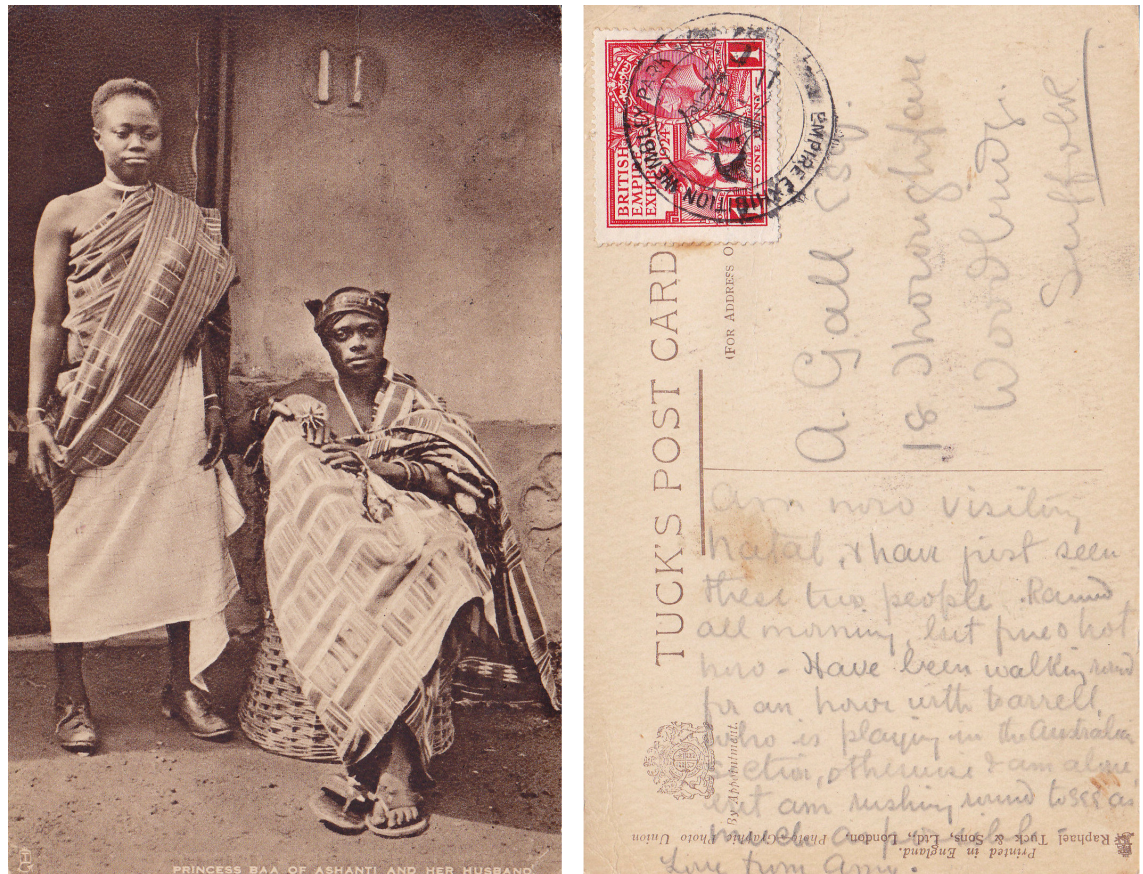 PRINCESS BAA OF ASHANTI AND HER HUSBAND
BRITISH
EMPIRE
EXHIBITION 1924
ONE PENNY
EMPIRE EXHIBITION WEMBLEY PARK
TUCK'S POST CARD
(FOR ADDRESS O
A. Gall Esq.
18 Thoroughfare
Woodbridge
Suffolk
Am now visiting
Natal, & have just seen
these two people. Rained
all morning, but fine & hot
now - Have been walking round
for an hour with Barrell,
who is playing in the Australian
Section, otherwise I am alone
but am rushing round to see as
much as possible -
Love from
By Appointment.
Raphael Tuck & Sons, Ltd., London. Photo-Graphic Photo Union
Printed in England.